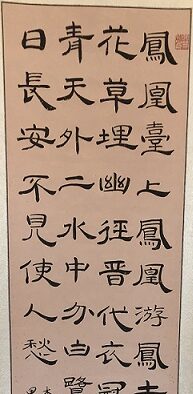 鳳凰臺上鳳凰游鳳去
花草埋幽徑晉代衣冠
青天外二水中分白鷺
日長安不見使人愁